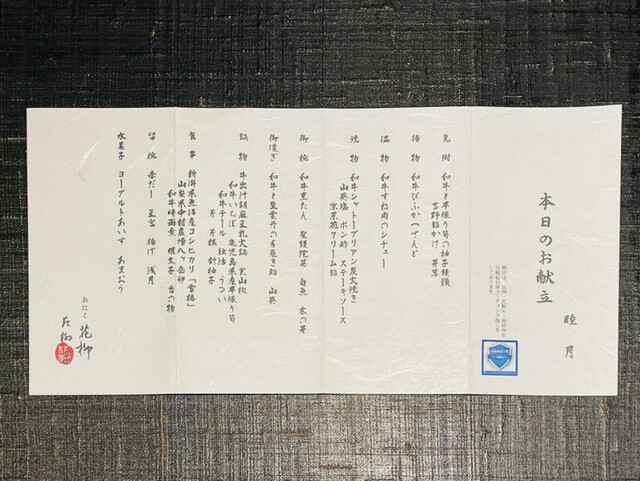 本日のお献立
睦月
先附 和牛と早堀り筍の柚子饅頭
吉野餡かけ 芽葱
揚物 和牛びふかつさんど
温物 和牛すね肉のシチュー
焼物 和牛シャトーブリアン炭火焼き
山葵塩 ポン酢 ステーキソース
京菜花クリーム餡
御椀 和牛黒たん 聖護院蕪 白魚 木の芽
御凌ぎ 和牛と塩雲丹の手巻き鮨 山葵
鍋物 牛出汁胡麻豆乳火鍋 実山椒
和牛いちぼ 鹿児島県産早堀り筍
和牛テール 独活 うるい
芹 芹根 針柚子
食事 新潟県魚沼産コシヒカリ「雪椿」
山梨県中村農場八ヶ岳卵
和牛時雨煮 明太子 香の物
留椀 赤だし 豆富 揚げ 浅月
水菓子 ヨーグルトあいす あまおう
おにく 花柳
片柳